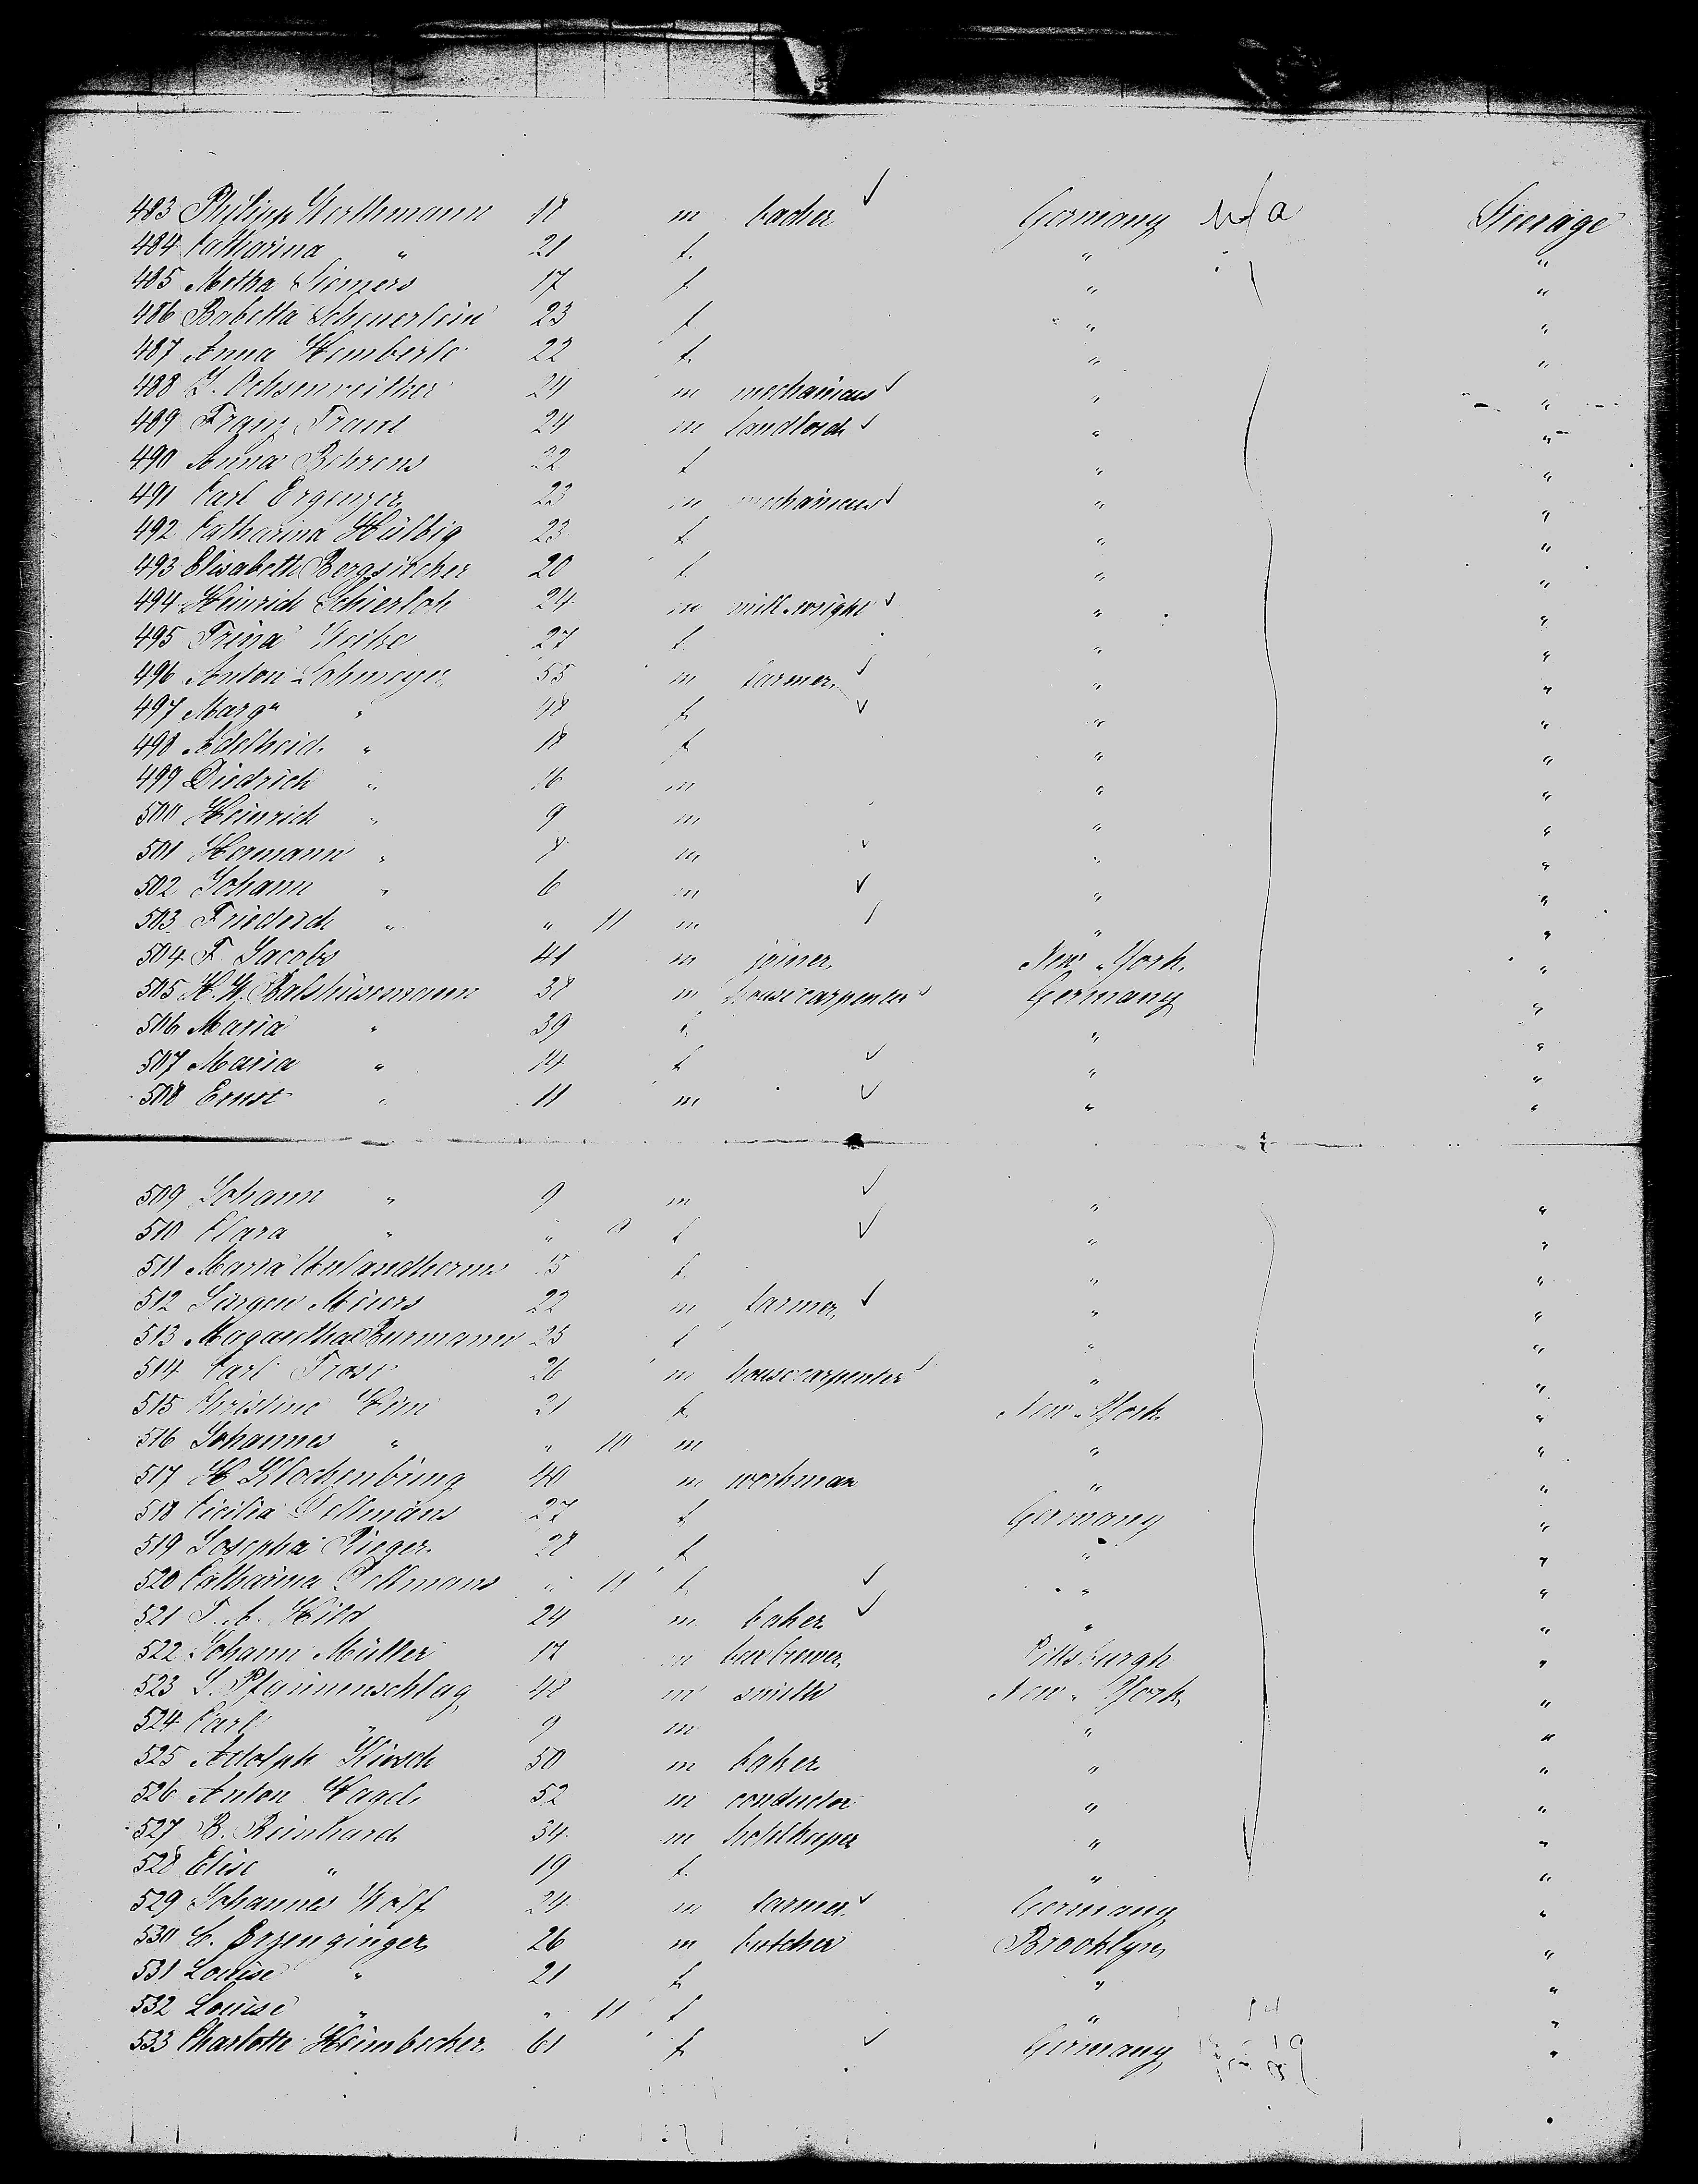 483 Philipp Worthmann 18 m backer Germany U S a Steerage
484 Catharina " 21 f. " "
485 Metha Siemers 17 f " "
486 Babetta Scheuerlein 23 f " "
487 Anna Homberle 22 f. " "
488 Z. Ochsenreither 24 m mechanicus " "
489 Franz Traut 24 m landlord " "
490 Anna Behrens 22 f " "
491 Carl Ergenzer 23 m mechanicus " "
492 Catharina Hülbig 23 f " "
493 Elisabeth 20 f " "
494 Heinrich Schierloh 24 m mill-wright " "
495 Trina 27 f " "
496 Anton Lohmeyer 55 m farmer " "
497 Marga " 48 f " "
498 Adelheid " 18 f " "
499 Diedrich " 16 m " "
500 Heinrich " 9 m " "
501 Hermann " m " "
502 Johann " 6 m " "
503 Friedrich " " 11 m " "
504 F Jacobs 41 m joiner New-York "
505 H. W. Balshüsemann 38 m housecarpenter Germany "
506 Maria " 39 f " "
507 Maria " 14 f " "
508 Ernst " 11 m " "
509 Johann " 9 m " "
510 Clara " " f " "
511 Maria 15 f " "
512 Jürgen Meiers 22 m farmer " "
513 25 f " "
514 Carl Frost 26 m housecarpenter " "
515 Christine 21 f New-York "
516 Johannes " " 10 m " "
517 H Klockenbring 40 m workman " "
518 Cicilia Dollmans 27 f Germany "
519 Josepha Rieger 28 f " "
520 Catharina Dollmans " 11 f " "
521 F. A. Hild 24 m baker " "
522 Johann Müller 17 m beerbrewer Pittsburgh "
523 J. Pfannenschlag 48 m smith New-York "
524 Carl " 9 m " "
525 Adolph Kirsch 50 m baker " "
526 Anton Hagel 52 m conductor " "
527 B. Reinhard 54 m hotelkeeper " "
528 Elise " 19 f. " "
529 Johannes Wolf 24 m farmer Germany "
530 C. Erzenginger 26 m butcher Brooklyn "
531 Louise " 21 f " "
532 Louise " " 11 f " "
533 Charlotte Heimbecher 61 f Germany "